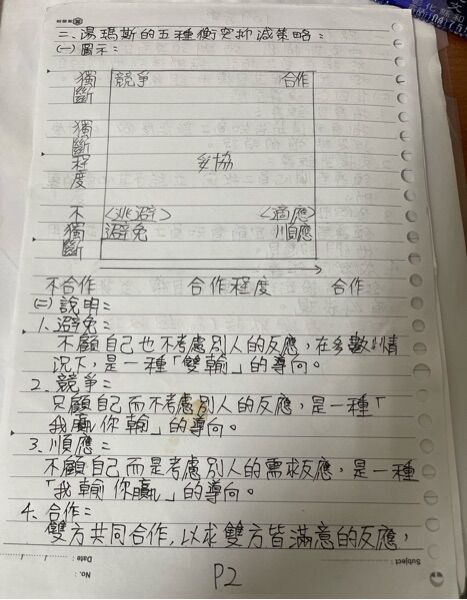 二、湯瑪斯的五種衝突抑減策略：
(一)圖示：
獨斷
競爭
合作
獨斷程度
妥協
不獨斷
<逃避>
避免
<適應>
順應
不合作
合作程度
合作
(二)說明：
1.避免：
不顧自己也不考慮別人的反應，在多數情
況下，是一種「雙輸」的導向。
2.競爭：
只顧自己而不考慮別人的反應，是一種「
我贏你輸」的導向。
3.順應：
不顧自己而是考慮別人的需求反應，是一種
「我輸你贏」的導向。
4.合作：
雙方共同合作，以求雙方皆滿意的反應，
Subject:
Date:
No.:
P2